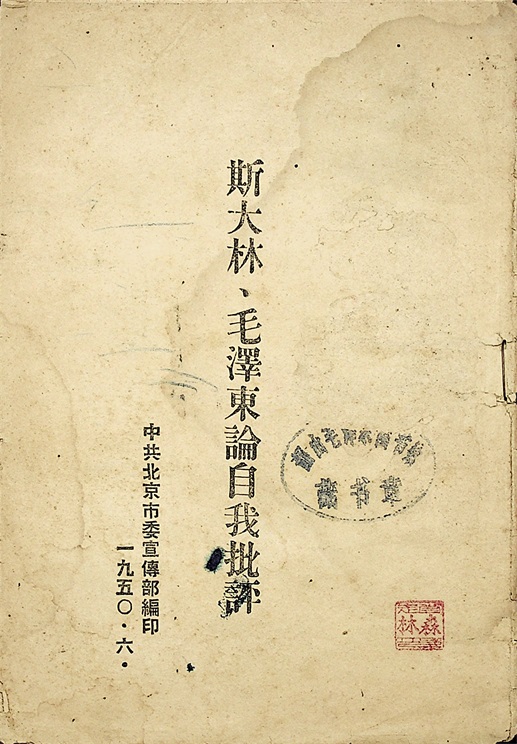 斯大林、毛澤東論自我批評
中共北京市委宣傳部編印
一九五〇・六・
森林